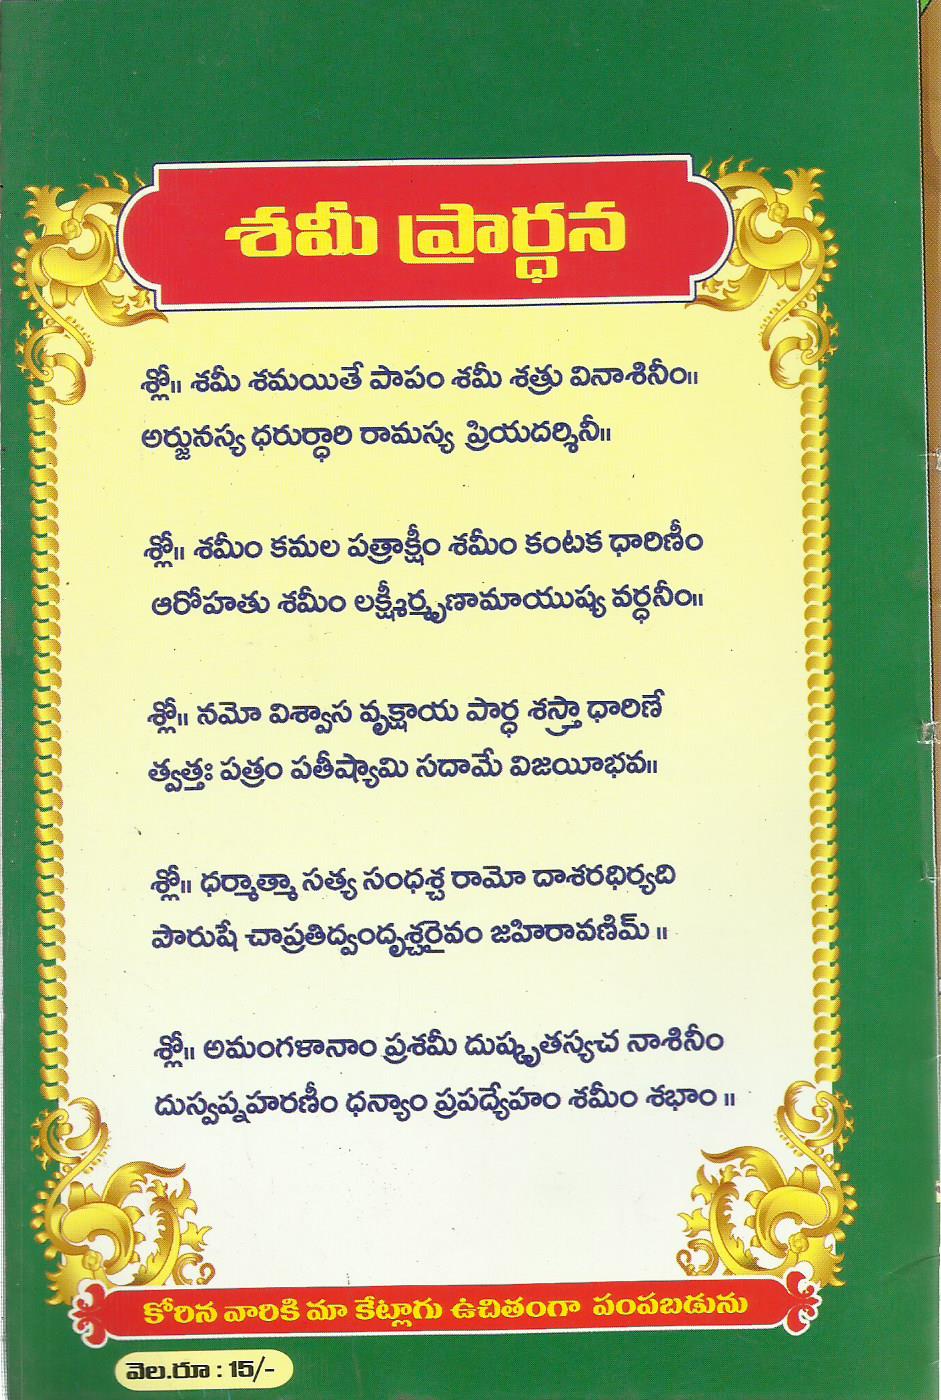 శమీ ప్రార్ధన
శ్లో॥ శమీ శమయితే పాపం శమీ శత్రు వినాశినీం॥
అర్జునస్య ధరుర్ధారి రామస్య ప్రియదర్శినీ॥
శ్లో॥ శమీం కమల పత్రాక్షీం శమీం కంటక ధారిణీం
ఆరోహతు శమీం లక్ష్మీర్మృణామాయుష్య వర్ధనీం॥
శ్లో॥ నమో విశ్వాస వృక్షాయ పార్ధ శస్త్రా ధారిణే
త్వత్తః పత్రం పతీష్యామి సదామే విజయీభవ॥
శ్లో॥ ధర్మాత్మా సత్య సంధశ్చ రామో దాశరధిర్యది
పౌరుషే చాప్రతిద్వందృశ్చరైవం జహిరావణిమ్ ॥
శ్లో॥ అమంగళానాం ప్రశమీ దుష్కృతస్యచ నాశినీం
దుస్వప్నహరణీం ధన్యాం ప్రపద్యేహం శమీం శభాం ॥
కోరిన వారికి మా కేట్లాగు ఉచితంగా పంపబడును
వెల.రూ : 15/-